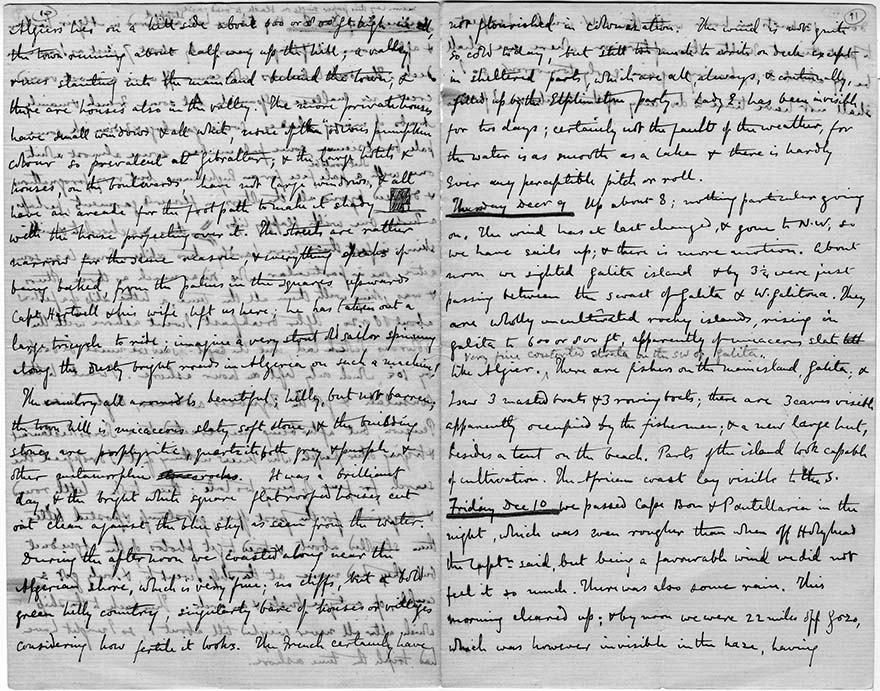 10
Algiers lies on a hill side about 600 or 800 ft high in all,
the town running about half way up the hill; a valley
runs slanting into the mainland behind the town, &
there are houses also in the valley. The more private houses
have small windows & all white, none of the odious pumpkin
colour so prevalent at Gibraltar; & the large hotels &
houses on the boulevards, have not large windows, & all
have an arcade for the foot path to make it shady
with the house projecting over it. The streets are rather
narrow for the same reason & everything speaks of
being baked from the palms in the squares upwards
Capt Hartwell & his wife left us here; he has taken out a
large tricycle to ride; imagine a very stout old sailor spinning
along the dusty bright roads in Algeria on such a machine!
The country all around is beautiful; hilly, but not barren;
the town hill is micaceous slaty soft stone, & the building
stones are porphyritic, quartzite both grey & purple, &
other metamorphic rocks. It was a brilliant
day & the bright white square flat roofed houses cut
out clean against the blue sky as seen from the water.
During the afternoon we coasted along near the
Algerian shore, which is very fine; no cliffs, but a bold
green hilly country singularly bare of houses or villages
considering how fertile it looks. The French certainly have
11
not flourished in colonisation. The wind is not quite
so cold today, but still too much to sit on deck except
in sheltered parts, which are all, always, & continually,
filled up by the Elphinstone party. Lady E. has been invisible
for two days; certainly not the fault of the weather, for
the water is as smooth as a lake & there is hardly
ever any perceptible pitch or roll.
Thursday Decr 9 Up about 8; nothing particular going
on. The wind has at last changed, & gone to N.W, so
we have sails up; & there is more motion. About
noon we sighted Galita island & by 3½ were just
passing between the S coast of Galita & W. Galitona. They
are wholly uncultivated rocky islands, rising in
Galita to 600 or 800 ft, apparently of micaceous slate
very fine contorted strata on the SW of Galita.
like Algier. There are fishers on the main island, Galita; &
I saw 3 masted boats & 3 rowing boats; there are 3 caves visible
apparently occupied by the fishermen; & a new large hut,
besides a tent on the beach. Parts of the island look capable
of cultivation. The African coast lay visible to the S.
Friday Dec 10 We passed Cape Bon & Pantellaria in the
night, which was even rougher than when off Holyhead
the Captn said, but being a favourable wind we did not
feel it so much. There was also some rain. This
morning cleared up; & by noon we were 22 miles off Gozo,
which was however invisible in the haze, having